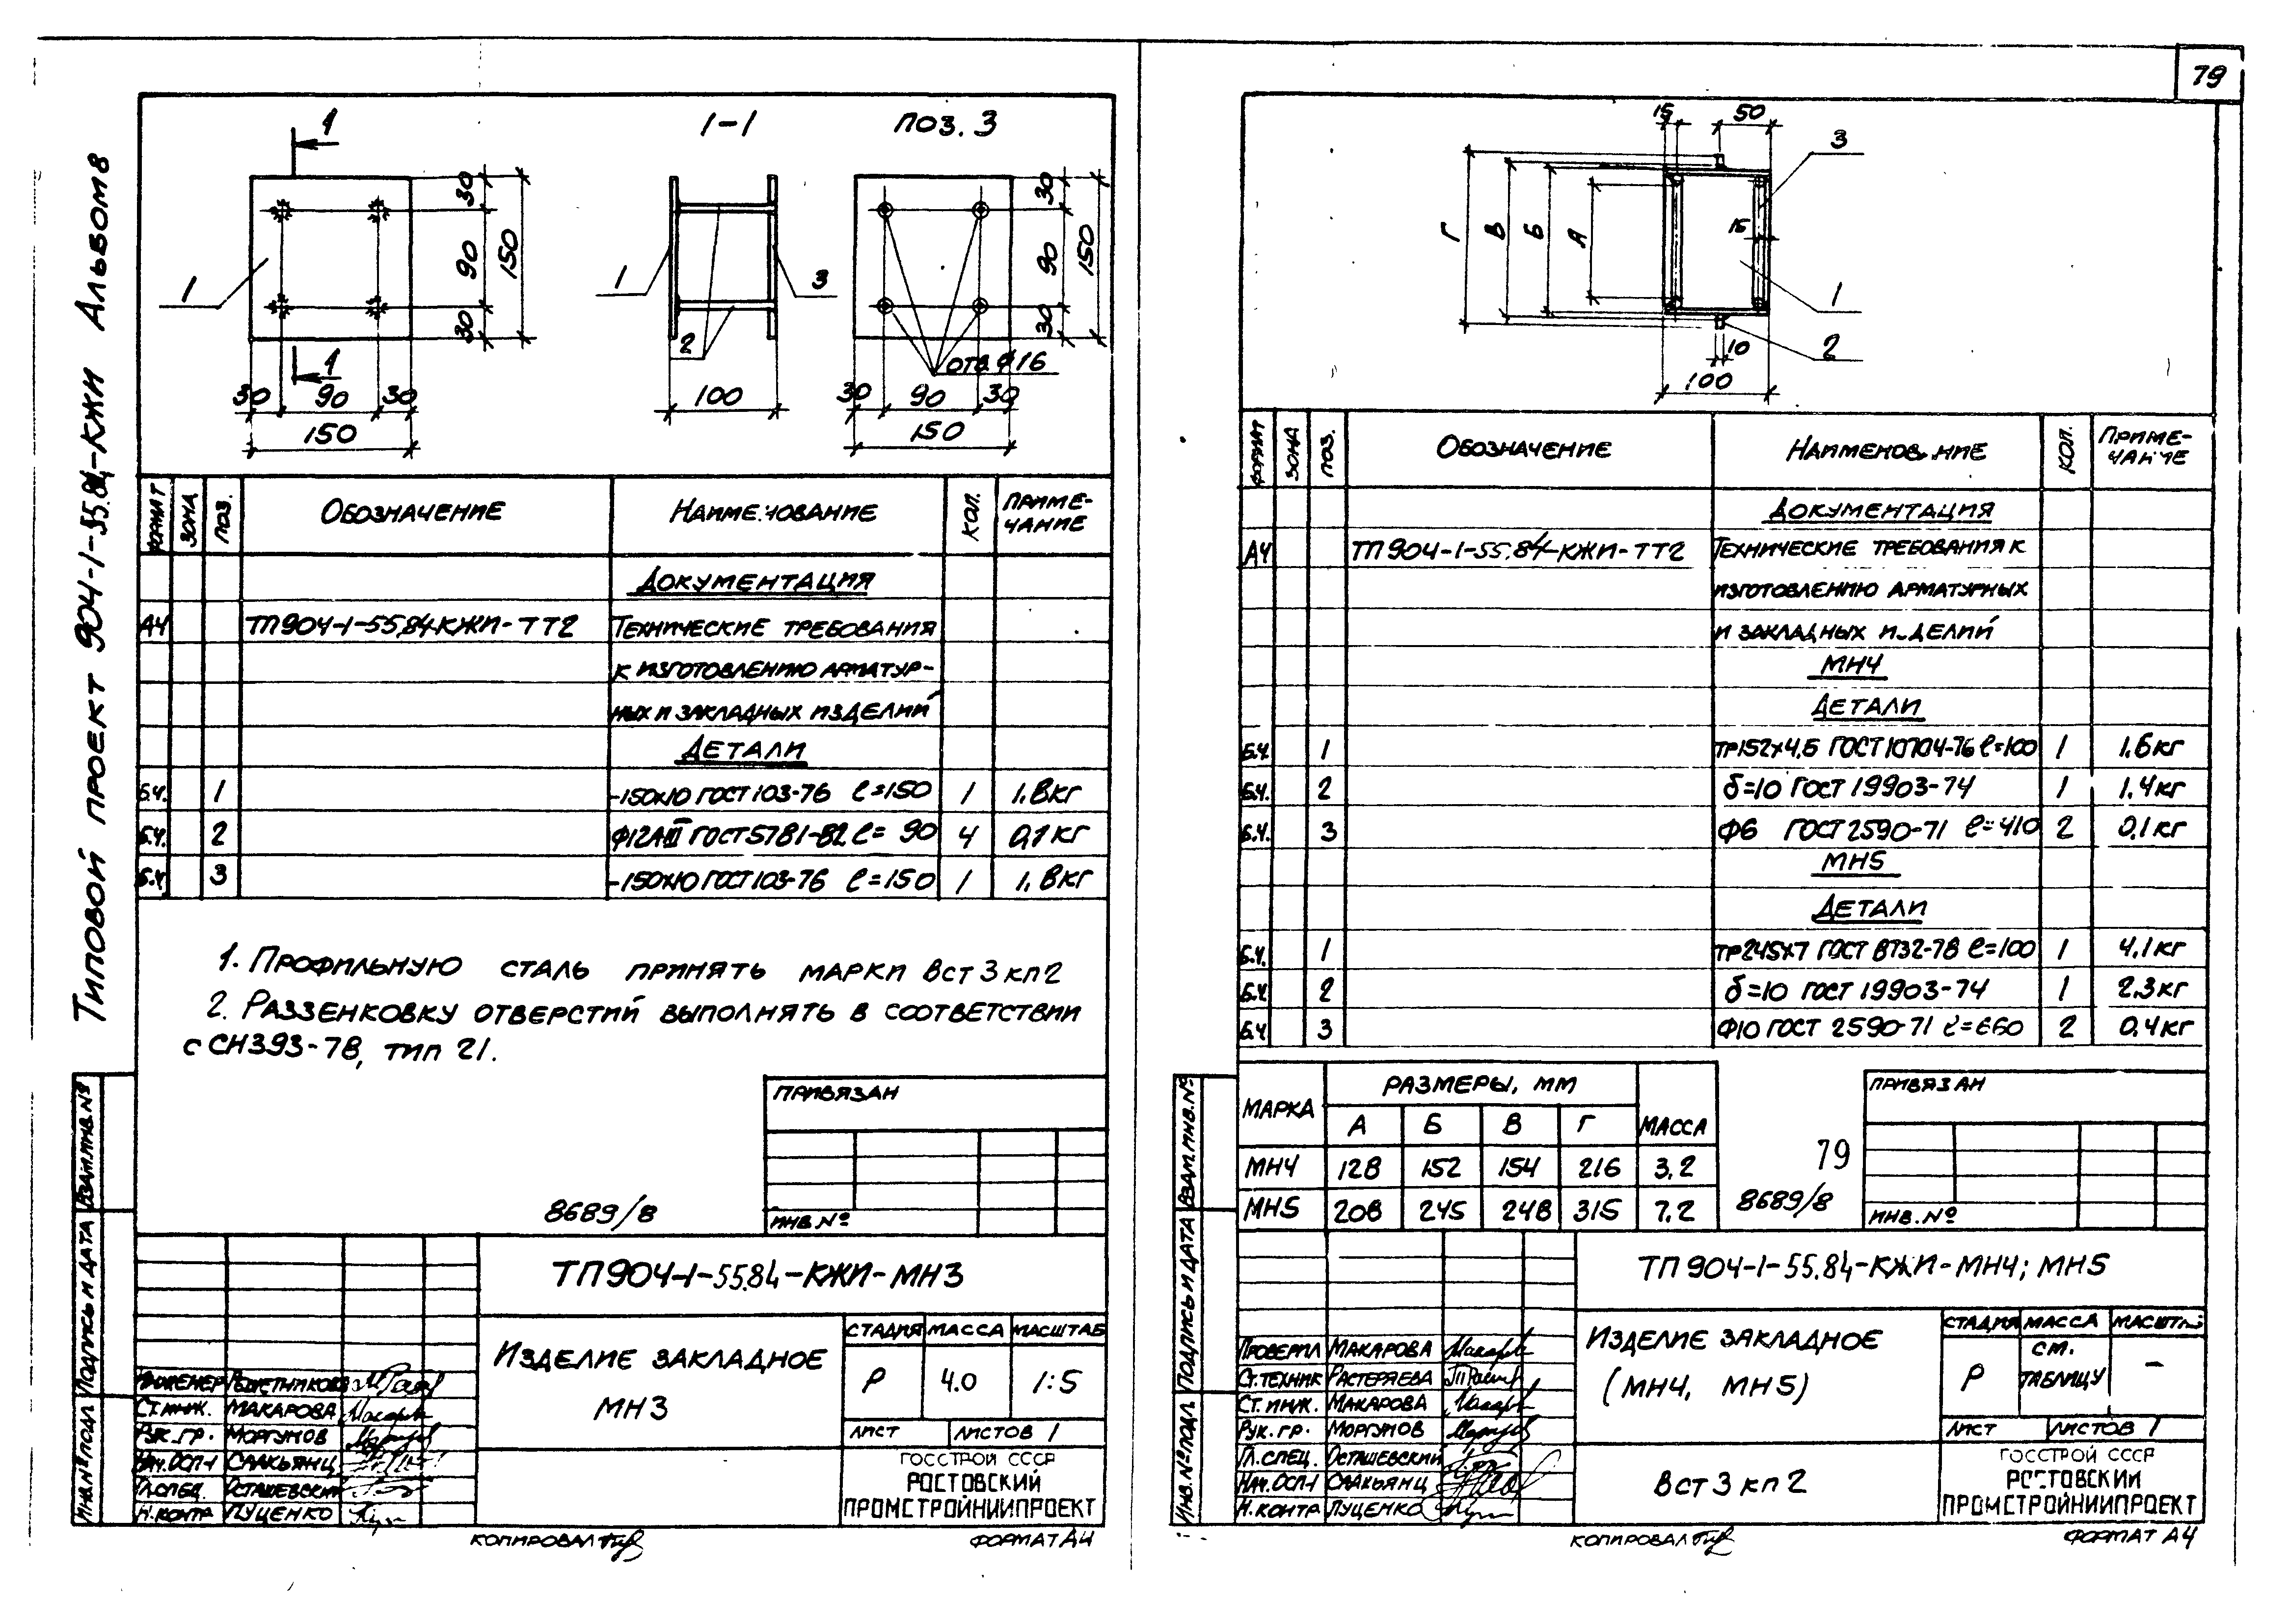 79
Типовой проект 904-1-55.84-КЖИ Альбом 8
1
1-1
поз. 3
30
90
30
150
1
1
30
90
30
150
1
2
3
100
30
90
30
150
отв. ϕ16
30
90
30
150
Формат
Зона
Поз.
Обозначение
Наименование
Кол.
Приме-
чание
Документация
А4 ТП904-1-55.84-КЖИ-ТТ2 Технические требования
к изготовлению арматур-
ных и закладных изделий
Детали
Б.ч. 1 -150х10 ГОСТ 103-76 ℓ=150 1 1,8кг
Б.ч. 2 Ф12АIII ГОСТ 5781-82 ℓ= 90 4 0,1кг
Б.ч. 3 -150х10 ГОСТ 103-76 ℓ=150 1 1,8кг
1. Профильную сталь принять марки Вст3кп2
2. Раззенковку отверстий выполнять в соответствии
с СН393-78, тип 21.
Привязан
Инв. №
8689/8
Взам.инв.№
Подпись и дата
Инв.№подл
ТП904-1-55.84-КЖИ-МН3
Изделие закладное
МН3
Стадия Масса Масштаб
Р 4.0 1:5
Лист Листов 1
Госстрой СССР
Ростовский
Промстройниипроект
Инженер Решетникова
Ст.инж. Макарова
Рук.гр. Моргунов
Нач.ОСП-1 Саакьянц
Гл.спец. Осташевский
Н.контр Луценко
Копировал
Формат А4
15
50
3
Г
В
Б
А
15
1
2
10
100
Формат
Зона
Поз.
Обозначение
Наименов.ние
Кол.
Приме-
чание
Документация
А4 ТП904-1-55.84-КЖИ-ТТ2 Технические требования к
изготовлению арматурных
и закладных и.делий
МН4
Детали
Б.ч. 1 Тр152х4,5 ГОСТ 10704-76 ℓ=100 1 1,6кг
Б.ч. 2 δ=10 ГОСТ 19903-74 1 1,4кг
Б.ч. 3 Ф6 ГОСТ 2590-71 ℓ=410 2 0,1кг
МН5
Детали
Б.ч. 1 Тр245х7 ГОСТ 8732-78 ℓ=100 1 4,1кг
Б.ч 2 δ=10 ГОСТ 19903-74 1 2,3кг
Б.ч 3 Ф10 ГОСТ 2590-71 ℓ=660 2 0,4кг
Марка Размеры, мм Масса
А Б В Г
МН4 128 152 154 216 3,2
МН5 208 245 248 315 7,2
79
8689/8
Привязан
Инв.№
Взам.инв.№
Подпись и дата
Инв.№подл.
ТП904-1-55.84-КЖИ-МН4; МН5
Изделие закладное
(МН4, МН5)
Стадия Масса Масшта
Р см. таблицу –
Лист Листов 1
Вст3кп2
Госстрой СССР
Ростовский
Промстройниипроект
Проверил Макарова
Ст.техник Растеряева
Ст.инж. Макарова
Рук.гр. Моргунов
Гл.спец. Осташевский
Нач.ОСП-1 Саакьянц
Н.контр Луценко
Копировал
Формат А4